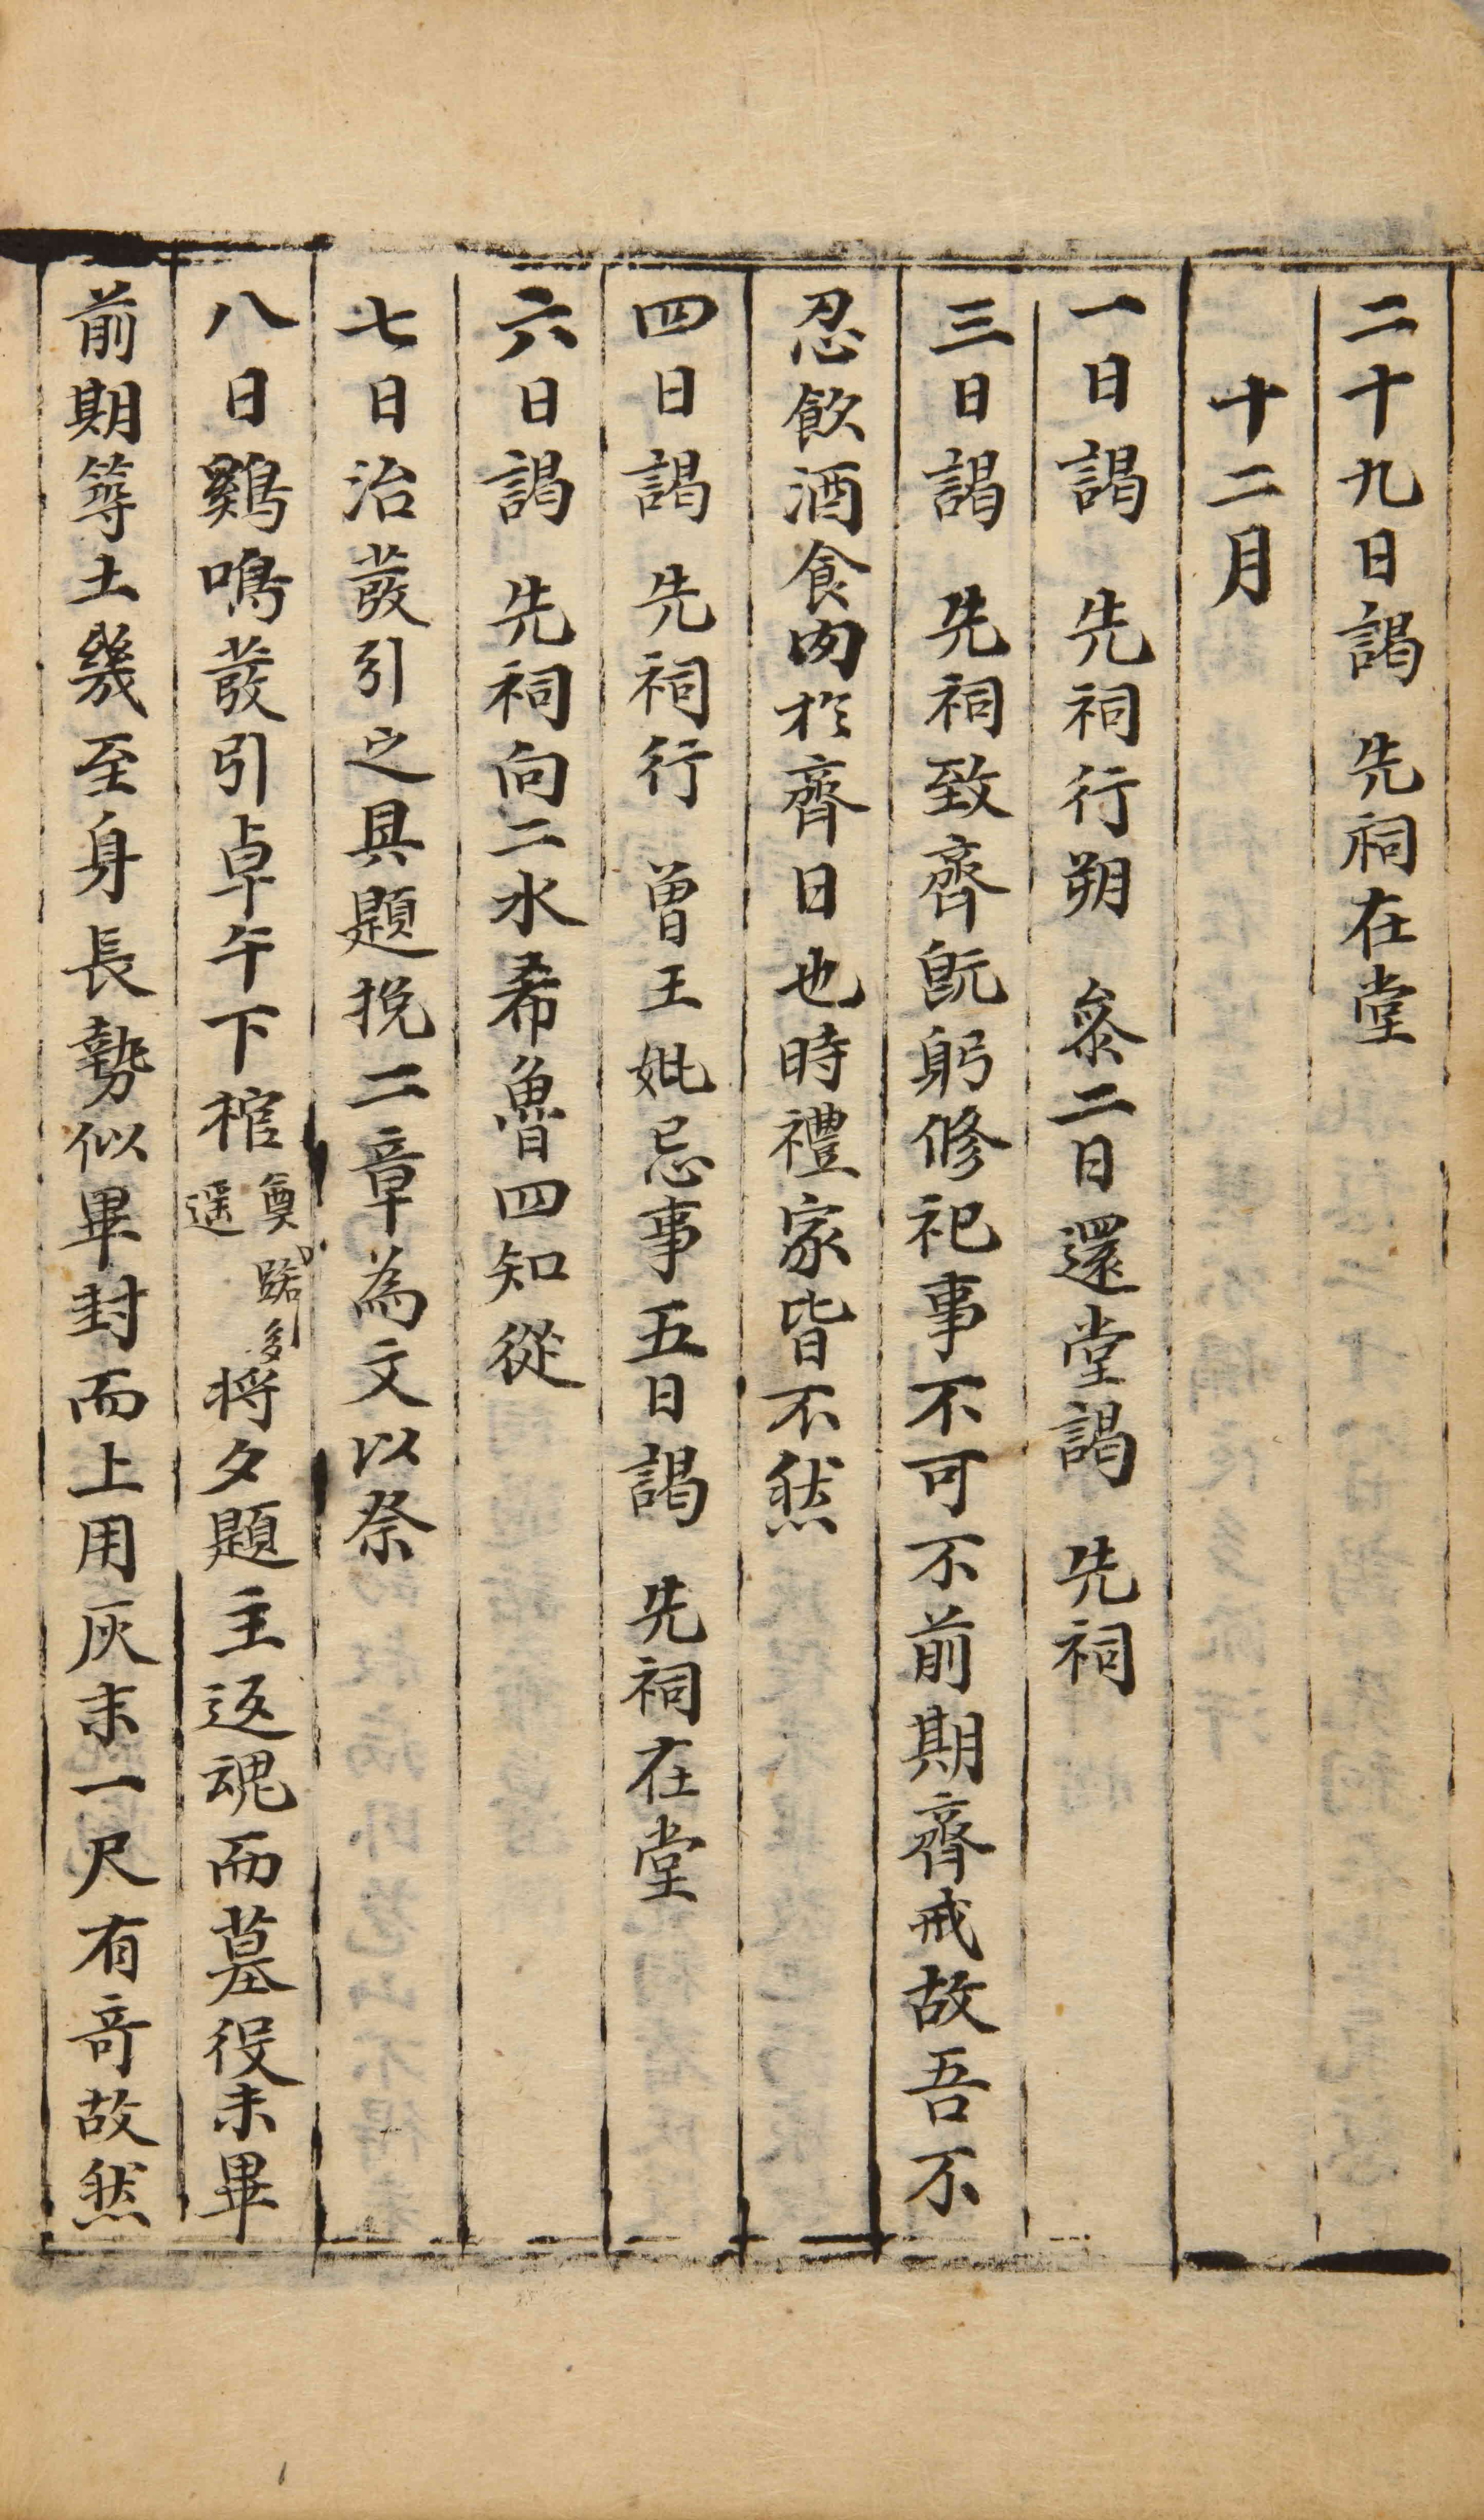 二十九日謁 先祠在堂
十二月
一日謁 先祠行朔 叅二日還堂謁 先祠
三日謁 先祠致齊旣躬修祀事不可不前期齊戒故吾不
忍飮酒食肉於齊日也時禮家皆不然
四日謁 先祠行 曽王妣忌事五日謁 先祠在堂
六日謁 先祠向二水希魯四知從
七日治發引之具題挽二章為文以祭
八日鷄鳴發引卓午下棺 奠 遥 將夕題主返魂而墓役未畢
前期等土幾至身長勢似畢封而上用灰末一尺有奇故然